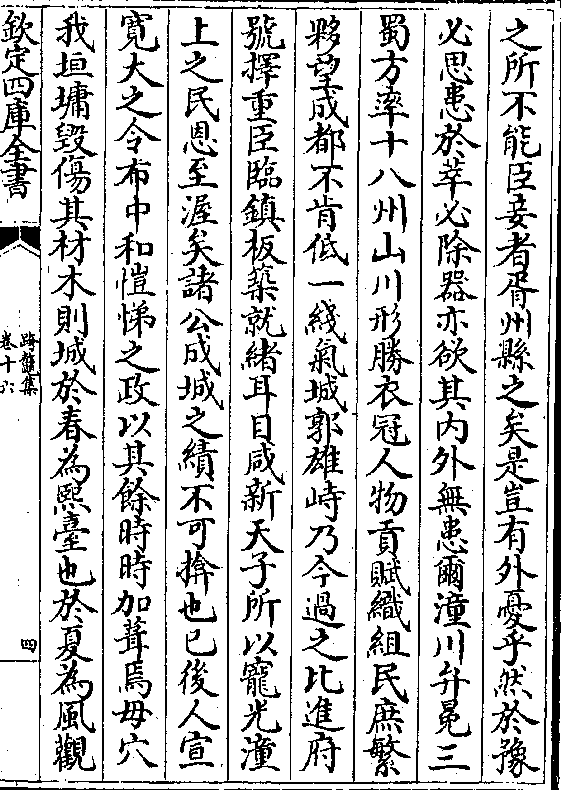 之所不能臣妾者胥州縣之矣是豈有外憂乎然於豫
必思患於萃必除器亦欲其內外無患爾潼川弁冕三
蜀方率十八州山川形勝衣冠人物貢賦織組民庶繁
夥望成都不肯低一綫氣城郭雄峙乃今過之比進府
號擇重臣臨鎮板築就緒耳目咸新天子所以寵光潼
上之民恩至渥矣諸公成城之績不可揜也已後人宣
寛大之令布中和愷悌之政以其餘時時加葺焉毋穴
我垣墉毀傷其材木則城於春為熙臺也於夏為風觀
欽定四庫全書
卷十六
四